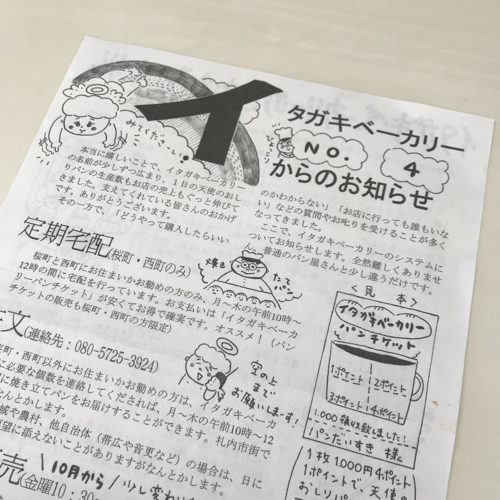 イタガキベーカリー
NO. 4
からのお知らせ
みてくださーい!
ひょこり
本当に嬉しいことで、イタガキベーカリー
の名前が少しずつ広まり、1日の天使のおし
りパンの生産数もお店の売上もぐっと伸びて
きました。支えてくれている皆さんのおかげ
です。ありがとうございます。
その一方で、「どうやって購入したらいい
のかわからない」「お店に行っても誰もいな
い」などの質問やお叱りを受けることが多く
なってきました。
ここで、イタガキベーカリーのシステムに
ついてお知らせします。全然難しくありませ
ん、普通のパン屋さんと少し違うだけです。
定期宅配(桜町・西町のみ)
桜町と西町にお住まいかお勤めの方のみ、月〜木の午前10時〜
12時の間に宅配を行っています。お支払いは「イタガキベーカ
リーパンチケット」が安くてお得で確実です。オススメ!(パン
チケットの販売も桜町・西町の方限定)
焼き
たて
パン
文(連絡先:080-5725-3924)
町・西町以外にお住まいかお勤めの方は、イタガキベーカ
に必要な個数を連絡してくだされば、月〜木の午前10時〜12
に焼き立てパンをお届けすることができます。札内市街で
なんとかします。
域や農村、他自治体(帯広や音更など)の場合は、日に
望に添えないことがありますがなんとかします。
空の上
まで
お願いします!
売(金曜10:30
10月から
少し変わい
<見本>
イタガキベーカリー
パンチケット
1ポイント
2ポイント
3ポイント
4ポイント
1,000領収致しました!
パンだいすき 様
1枚1,000円4ポイント
1ポイントで、天使
おしりパ